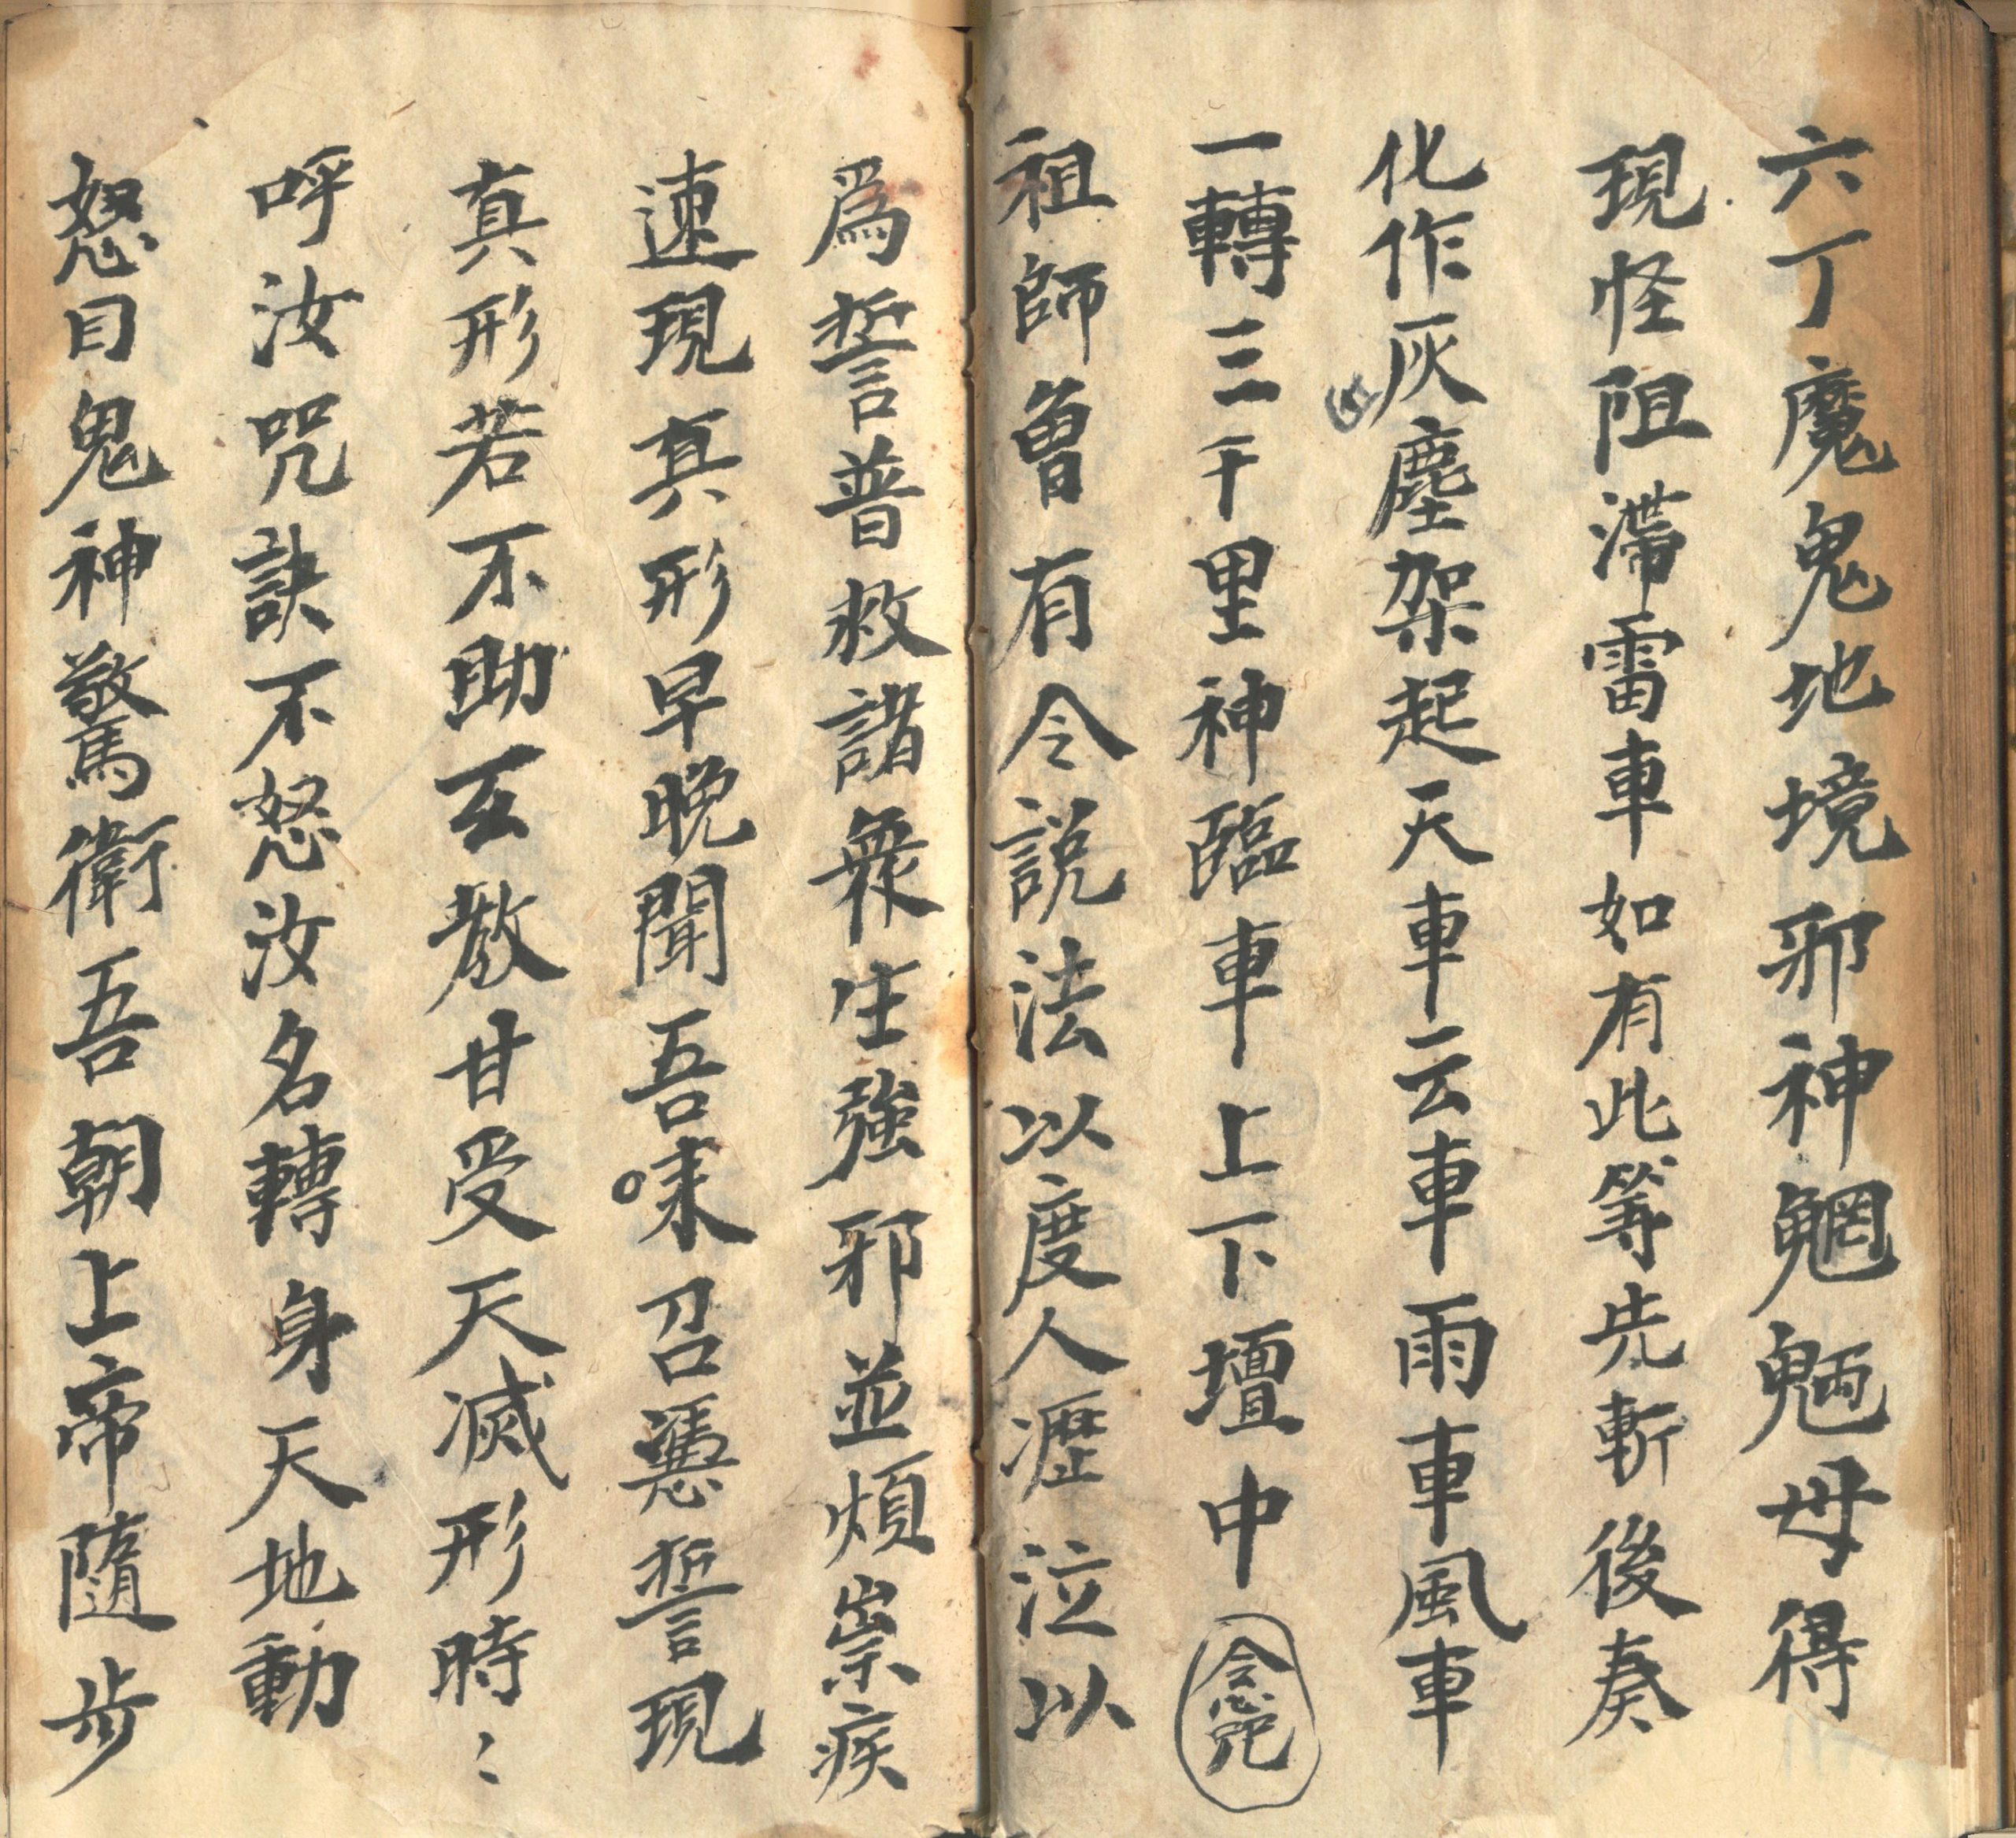 六丁魔鬼地境邪神魍魎毋得
現怪阻滯雷車如有此等先斬後奏
化作灰塵架起天車云車雨車風車
一轉三千里神臨車上下壇中
念咒
祖師曾有令説法以度人瀝泣以
爲誓普救諸衆生強邪並煩祟疾
速現真形早晚聞吾召憑誓現
真形若不助玄教甘受天滅形時〻
呼汝咒訣不怒汝名轉身天地動
怒目鬼神驚衛吾朝上帝隨步